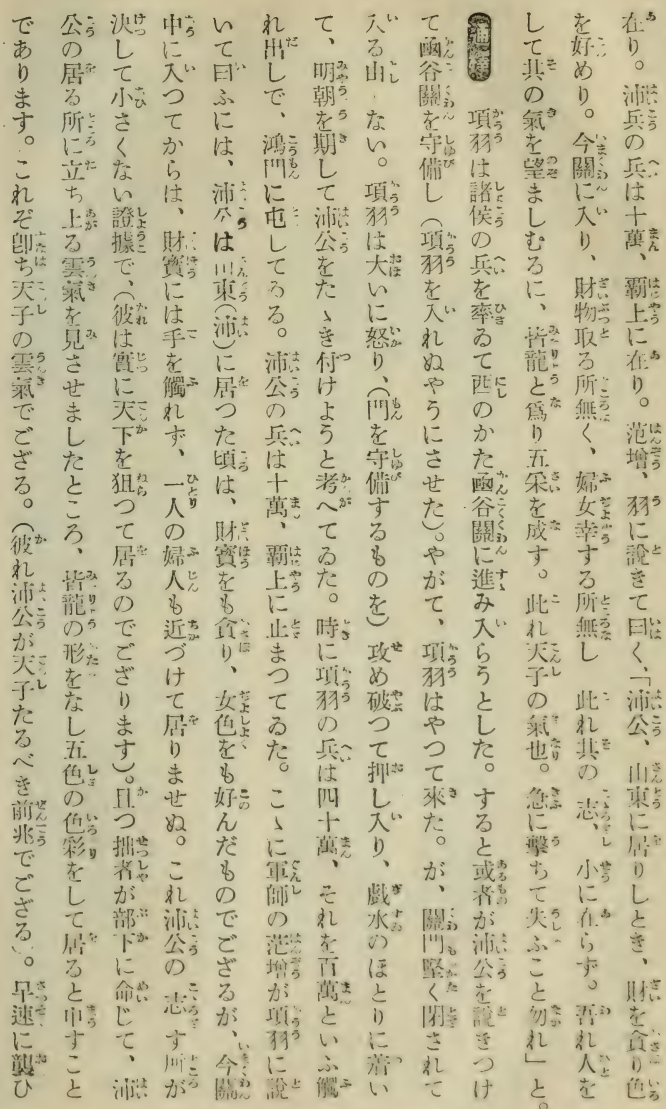 在り。沛兵の兵は十萬、覇上に在り。范增、羽に說きて曰く、「沛公、山東に居りしとき、財を貪り色
を好めり。今關に入り、財物取る所無く、婦女幸する所無し 此れ其の志、小に在らず。吾れ人を
して其の氣を望ましむるに、皆龍と爲り五采を成す。此れ天子の氣也。急に擊ちて失ふこと勿れ」と。
項羽は諸侯の兵を率ゐて西のかた函谷關に進み入らうとした。すると或者が沛公を說きつけ
て函谷關を守備し(項羽を入れぬやうにさせた)。やがて、項羽はやつて來た。が、關門堅く閉されて
入る ない。項羽は大いに怒り、(門を守備するものを)攻め破つて押し入り、戲水のほとりに着い
て、明朝を期して沛公をたゝき付けようと考へてゐた。時に項羽の兵は四十萬、それを百萬といふ觸
れ出しで、鴻門に屯してゐる。沛公の兵は十萬、覇上に止まつてゐた。こゝに軍師の范增が項羽に說
いて曰ふには、沛公は山東(沛)に居つた頃は、財寶をも貪り、女色をも好んだものでござるが、今關
中に入つてからは、財寶には手を觸れず、一人の婦人も近づけて居りませぬ。これ沛公の志す所が
決して小さくない證據で、(彼は實に天下を狙つて居るのでござります)。且つ拙者が部下に命じて、沛
公の居る所に立ち上る雲氣を見させましたところ、皆龍の形をなし五色の色彩をして居ると申すこと
であります。これぞ卽ち天子の雲氣でござる。(彼れ沛公が天子たるべき前兆でござる)。早速に襲ひ